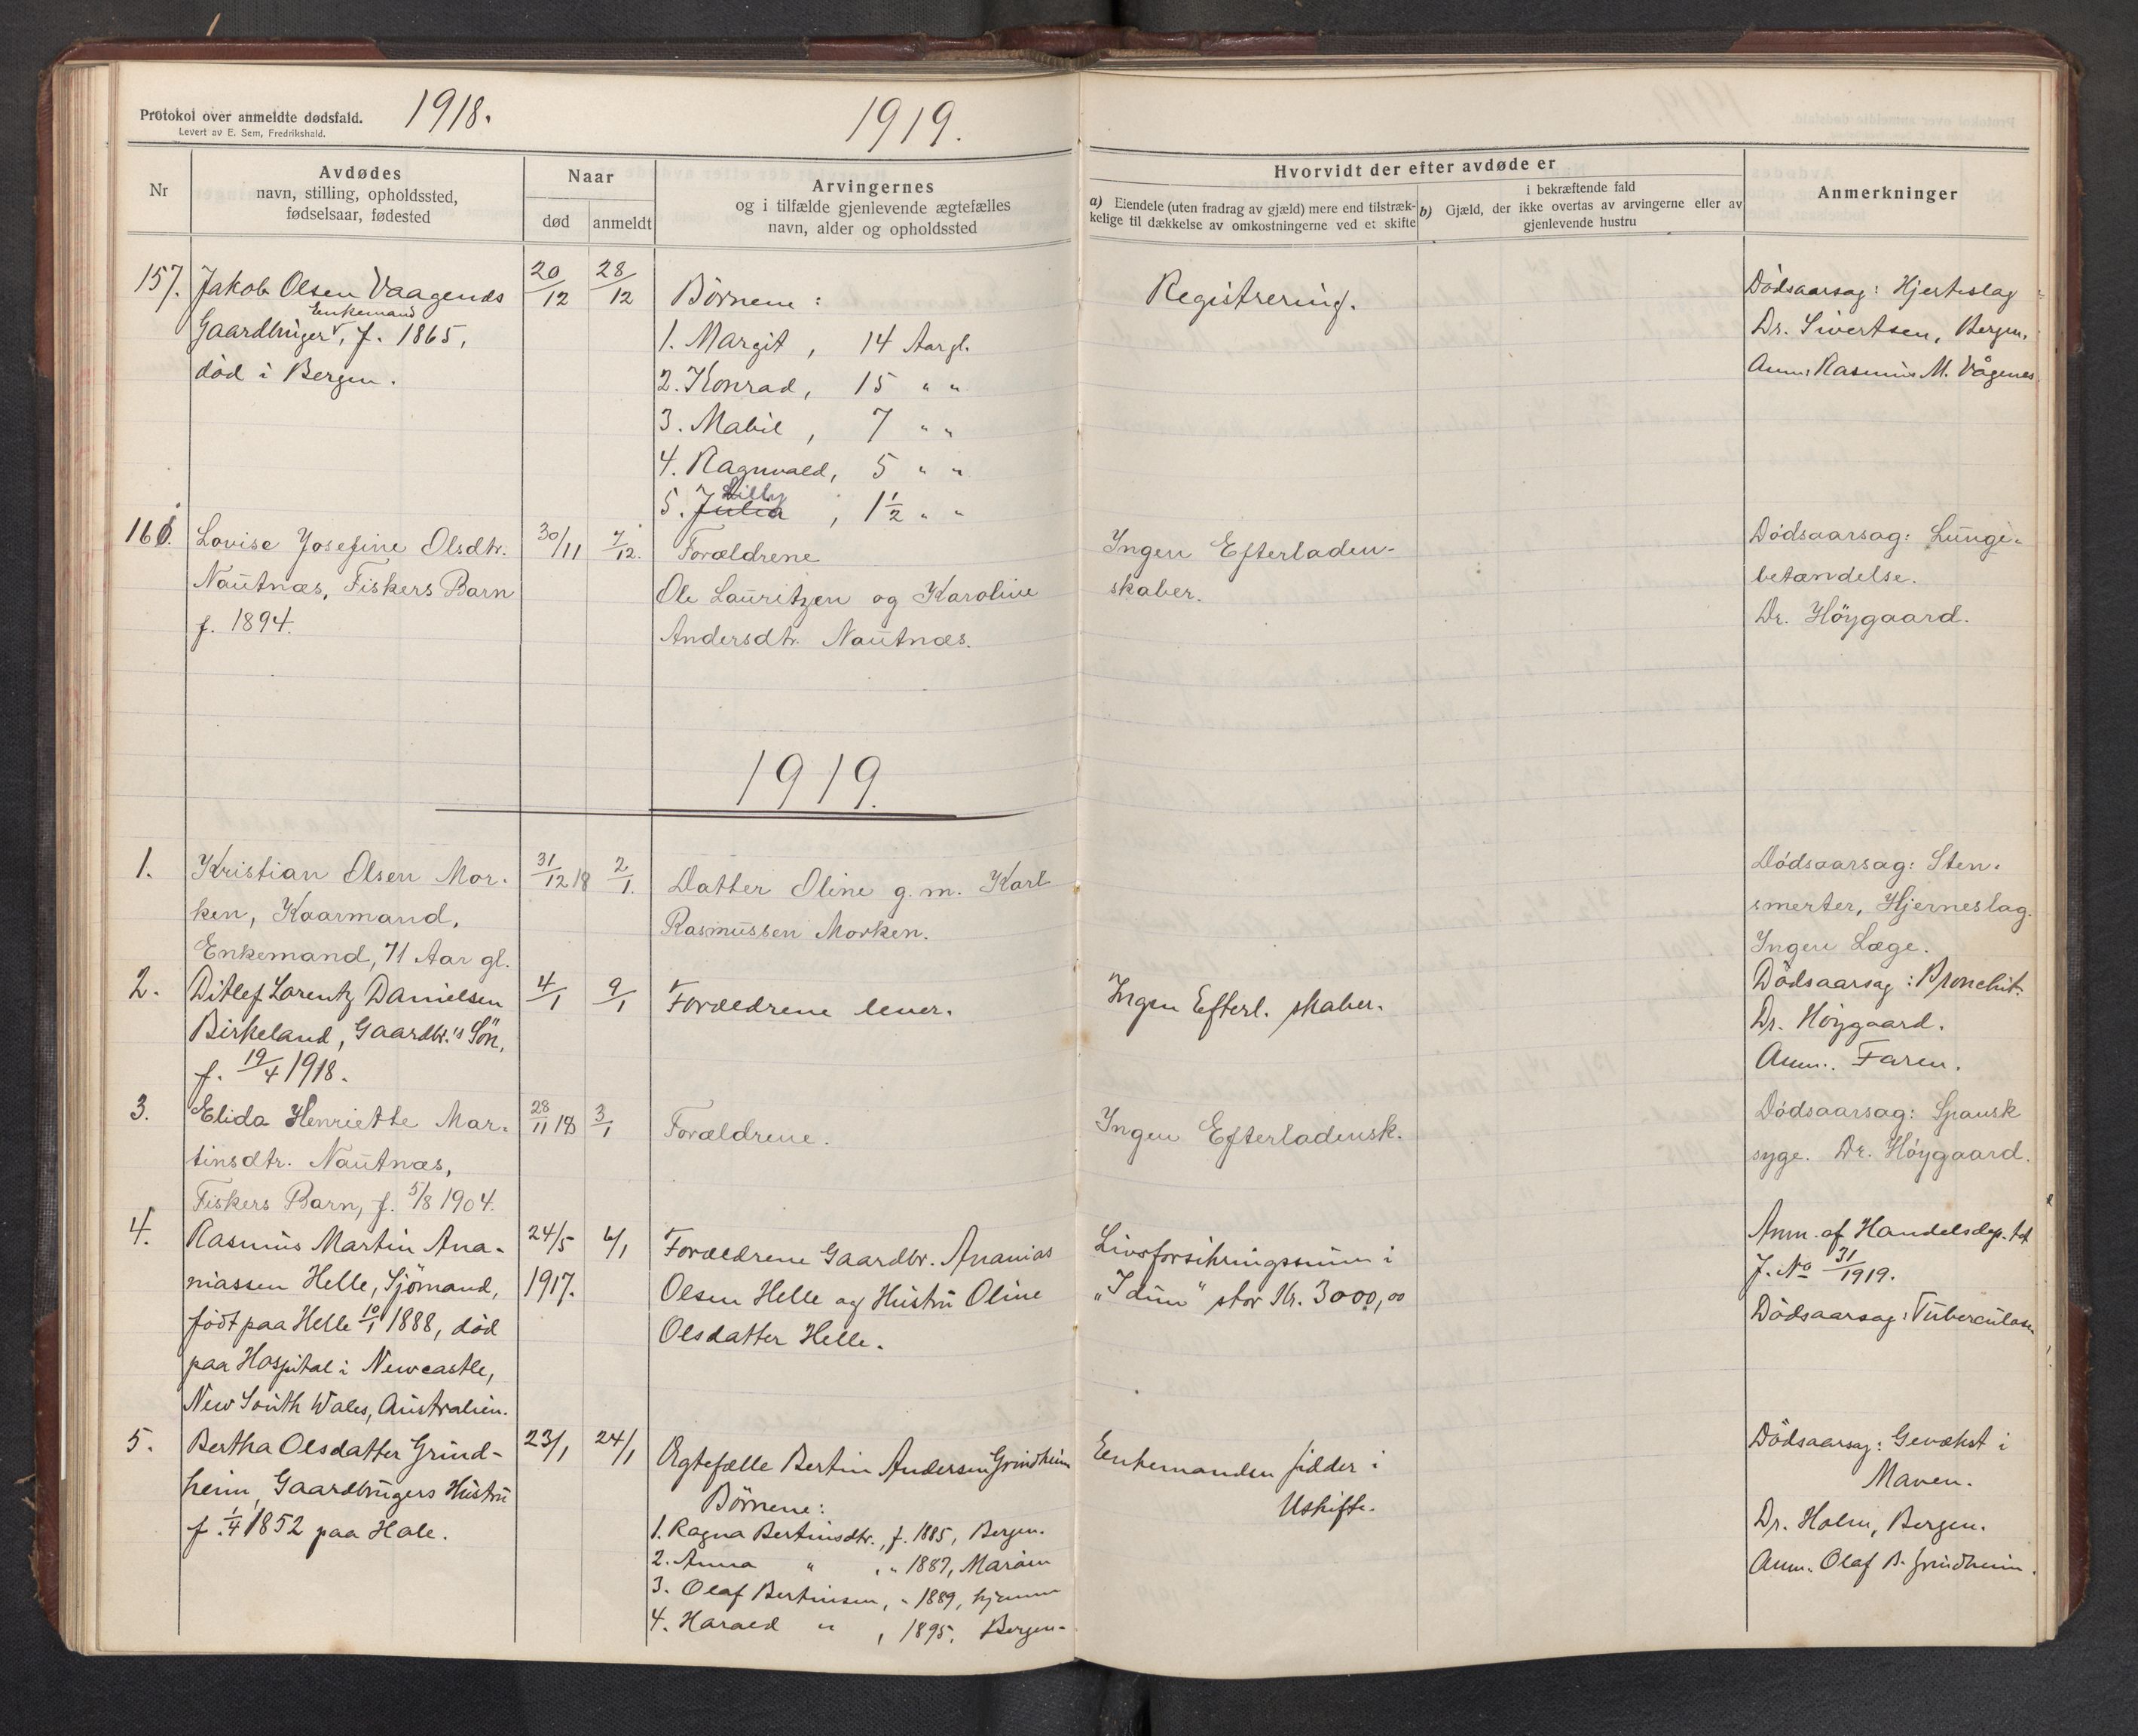 Protokol over anmeldte dødsfald.
Levert av E. Sem, Fredrikshald.
1918.
1919.
Nr
Avdødes
navn, stilling, opholdssted,
fødselsaar, fødested
Naar
død
anmeldt
Arvingernes
og i tilfælde gjenlevende ægtefælles
navn, alder og opholdssted
Hvorvidt der efter avdøde er
a) Eiendele (uten fradrag av gjæld) mere end tilstræk-
kelige til dækkelse av omkostningerne ved et skifte
i bekræftende fald
b) Gjæld, der ikke overtas av arvingerne eller av
gjenlevende hustru
Anmerkninger
157.
Jakob Olsen Vaagenes
Enkemand
Gaardbruger, f. 1865,
død i Bergen.
20/12
28/12
Börnene:
1. Margit, 14 Aar gl.
2. Konrad, 15 " "
3. Mabil, 7 " "
4. Ragnvald, 5 " "
Lilly
5. Julia, 1½ " "
Registrering.
Dödsaarsag: Hjerteslag
Dr. Sivertsen, Bergen.
Anm. Rasmus M. Vågenes
Lovise Josefine Olsdtr.
Nautnæs, Fiskers Barn
f. 1894.
30/11
7/12.
Forældrene
Ole Lauritzen og Karoline
Andersdtr. Nautnæs.
Ingen Efterladen-
skaber.
Dödsaarsag: Lunge-
betændelse.
Dr. Höygaard.
1919.
1.
Kristian Olsen Mor-
ken, Kaarmand,
Enkemand, 71 Aar gl.
31/12 18
2/1.
Datter Oline g. m. Karl
Rasmussen Morken.
Dödsaarsag: Sten-
smerter, Hjerneslag.
Ingen Læge.
2.
Ditlef Lorentz Danielsen
Birkeland, Gaardbr.'s Sön,
f. 19/4 1918.
4/1
9/1
Forældrene lever.
Ingen Efterl. skaber.
Dödsaarsag: Bronchit.
Dr. Höygaard.
Anm. Faren.
3.
Elida Henriette Mar-
tinsdtr. Nautnæs,
Fiskers Barn, f. 5/8 1904.
28/11 18
3/1
Forældrene.
Ingen Efterladensk.
Dödsaarsag: Spansk
syge. Dr. Höygaard.
4.
Rasmus Martin Ana-
niassen Helle, Sjömand,
født paa Helle 10/1 1888, död
paa Hospital i Newcastle,
New South Wales, Australien.
24/5
1917.
6/1
Forældrene Gaardbr. Ananias
Olsen Helle og Hustru Oline
Olsdatter Helle.
Livsforsikringssum i
"Idun" stor Kr. 3000,00
Anm. af Handelsdep.tet
J. No 31/1919.
Dödsaarsag: Tuberculose
5.
Bertha Olsdatter Grind-
heim, Gaardbrugers Hustru
f. 1/4 1852 paa Hole.
23/1
24/1
Ægtefælle Bertin Andersen Grindheim
Börnene:
1. Ragna Bertinsdtr., f. 1885, Bergen.
2. Anna " , " 1887, Marøen
3. Olaf Bertinsen, " 1889, hjemme
4. Harald " , 1895, Bergen.
Enkemanden sidder i
Uskifte.
Dödsaarsag: Gevækst i
Maven.
Dr. Holm, Bergen.
Anm. Olaf B. Grindheim.